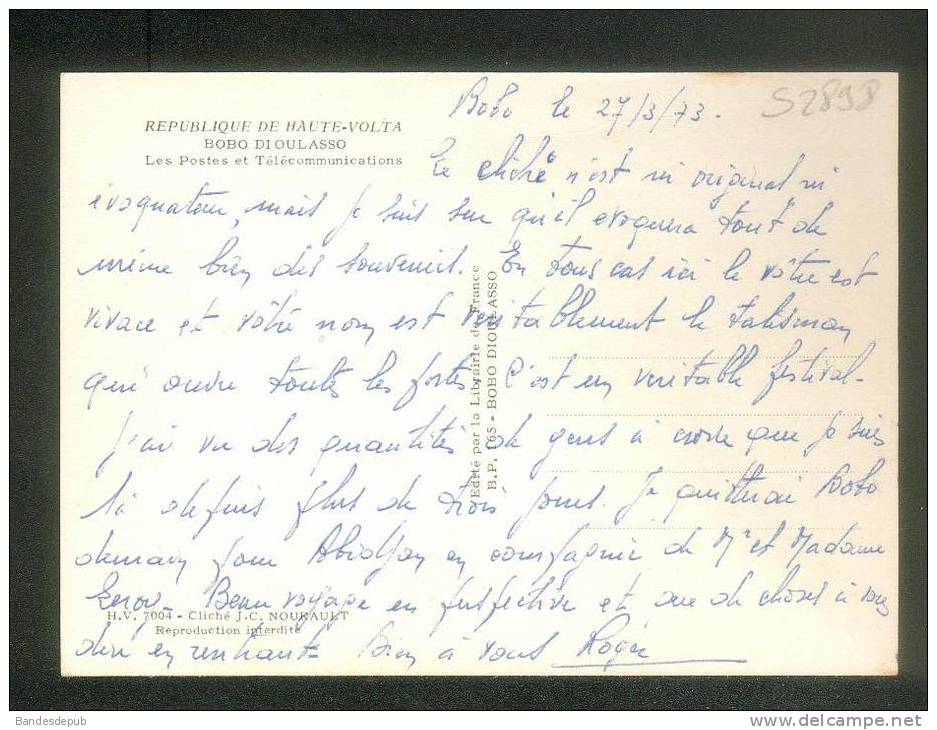 Bobo le 27/3/73.
S2898
REPUBLIQUE DE HAUTE-VOLTA
BOBO DIOULASSO
Les Postes et Télécommunications
Le cliché n'est ni original ni
évoquateur, mais je suis sur qu'il evoquera tout de
même bien des souvenirs. En tous cas ici le vôtre est
vivace et vôtre nom est veritablement le talisman
qui ouvre toutes les portes. C'est un veritable festival.
J'ai vu des quantités de gens à croire que je suis
là depuis plus de trois jours. Je quitterai Bobo
demain pour Abidjan en compagnie de Mr et Madame
Leroy. Beau voyage en perspective et que de choses à vous
dire en rentrant. Bien à vous Roger
Edité par la Librairie de France
B.P. 165 - BOBO DIOULASSO
H.V. 7004 - Cliché J.C. NOURAULT
Reproduction interdite
Bandesdepub
www.delcampe.net